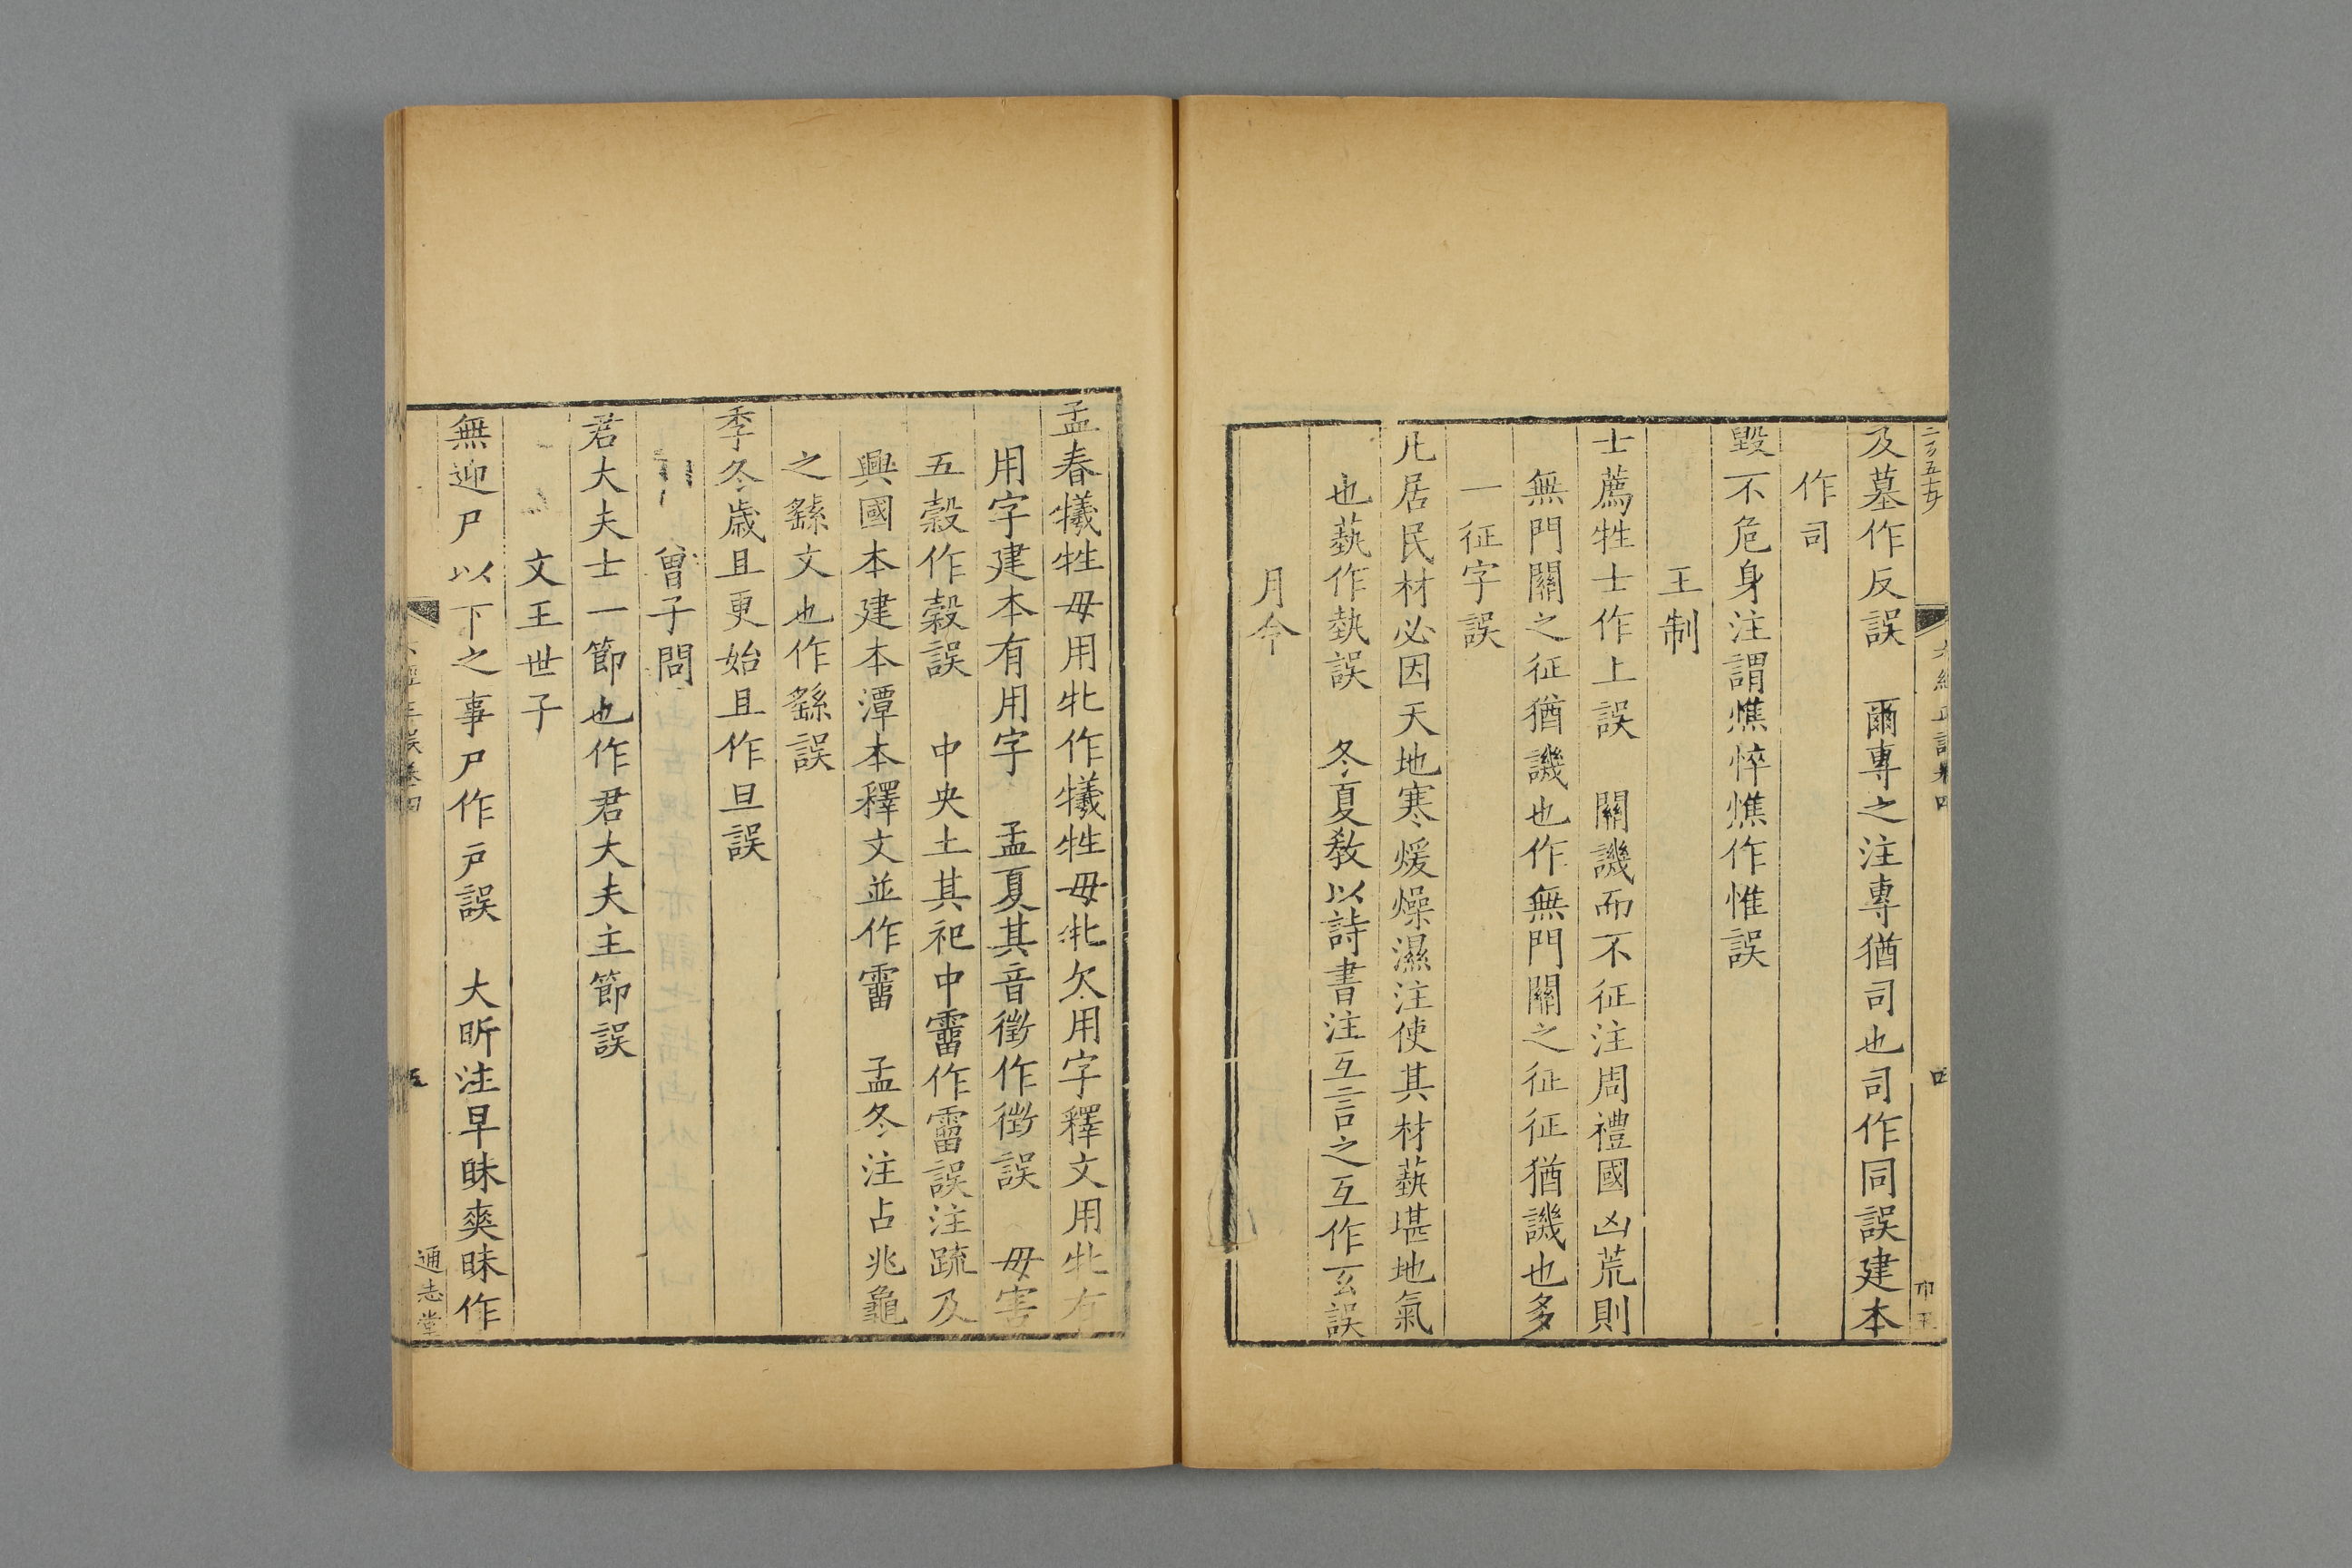 及墓作反誤　爾專之注專猶司也司作同誤建本
作司
毀不危身注謂憔悴憔作惟誤
王制
士薦牲士作上誤　關譏而不征注周禮國凶荒則
無門關之征猶譏也作無門關之征征猶譏也多
一征字誤
凡居民材必因天地寒煖燥濕注使其材蓺堪地氣
也蓺作埶誤　冬夏教以詩書注互言之互作𤣥誤
月令
孟春犧牲毋用牝作犧牲毋牝欠用字釋文用牝有
用字建本有用字　孟夏其音徵作徴誤　毋害
五穀作糓誤　中央土其祀中霤作雷誤注疏及
興國本建本潭本釋文並作霤　孟冬注占兆龜
之繇文也作繇誤
季冬歲且更始且作旦誤
曾子問
君大夫士一節也作君大夫主節誤
文王世子
無迎尸以下之事尸作戸誤　大昕注早昧爽昧作
五
通志堂